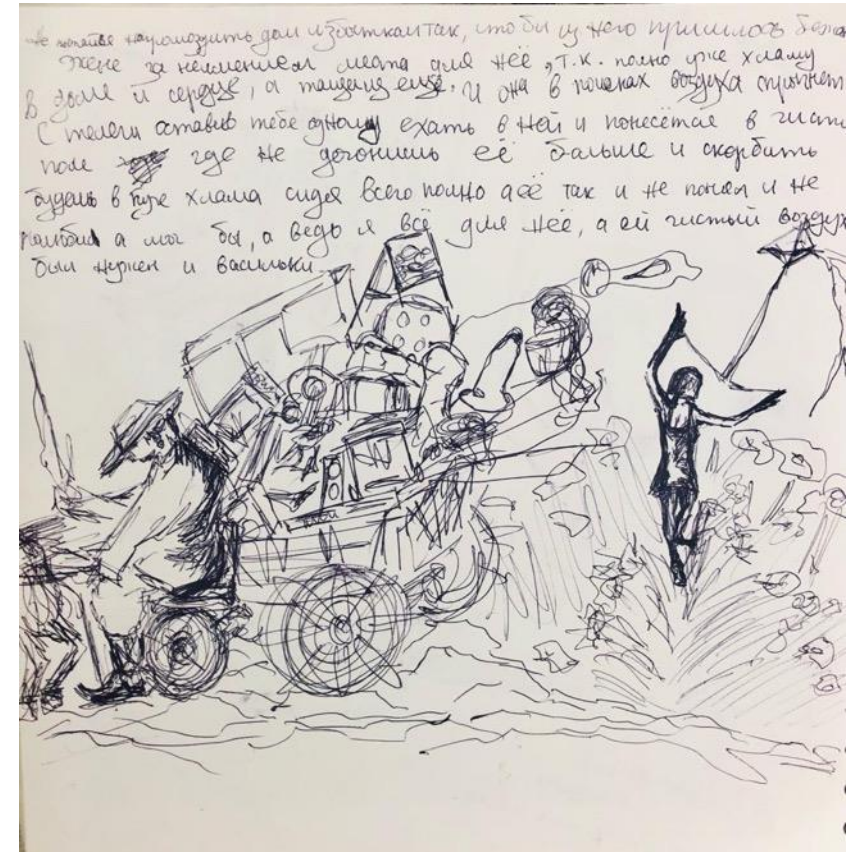 Не пытайся нагромоздить дом избытком так, что бы из него пришлось бежать
жене за неимением места для неё, т.к. полно уже хламу
В доме и сердце, а тащишь ещё. И она в поисках воздуха спрыгнет
С телеги оставив тебе одному ехать в ней и понесётся в чисто
поле где не догонишь её больше и скорбить
будешь в куче хлама сидя всего полно а её так и не понял и не
полюбил а мог бы, а ведь я всё для неё, а ей чистый воздух
был нужен и васильки